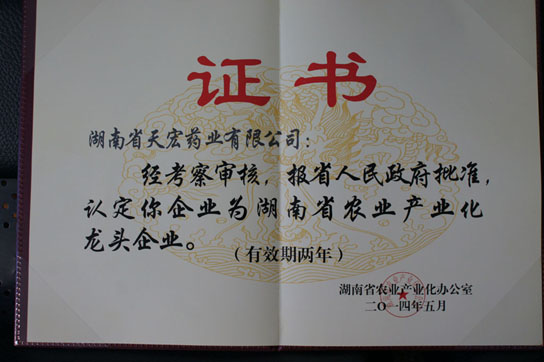 证书
湖南省天宏药业有限公司：
经考察审核，报省人民政府批准，
认定你企业为湖南省农业产业化
龙头企业。
（有效期两年）
湖南省农业产业化办公室
二〇一四年五月